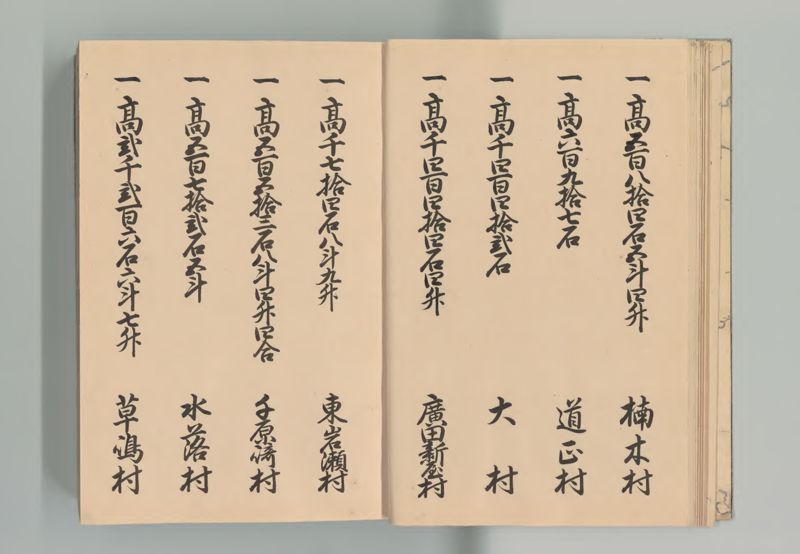 一 高五百八拾四石五斗四升 楠木村
一 高六百九拾七石 道正村
一 高千四百四拾弐石 大村
一 高千四百四拾四石四升 廣田新屋村
一 高千七拾四石八斗九升 東岩瀬村
一 高五百五拾三石八斗四升四合 千原﨑村
一 高五百七拾弐石五斗 水落村
一 高弐千弐百六石六斗七升 草嶋村